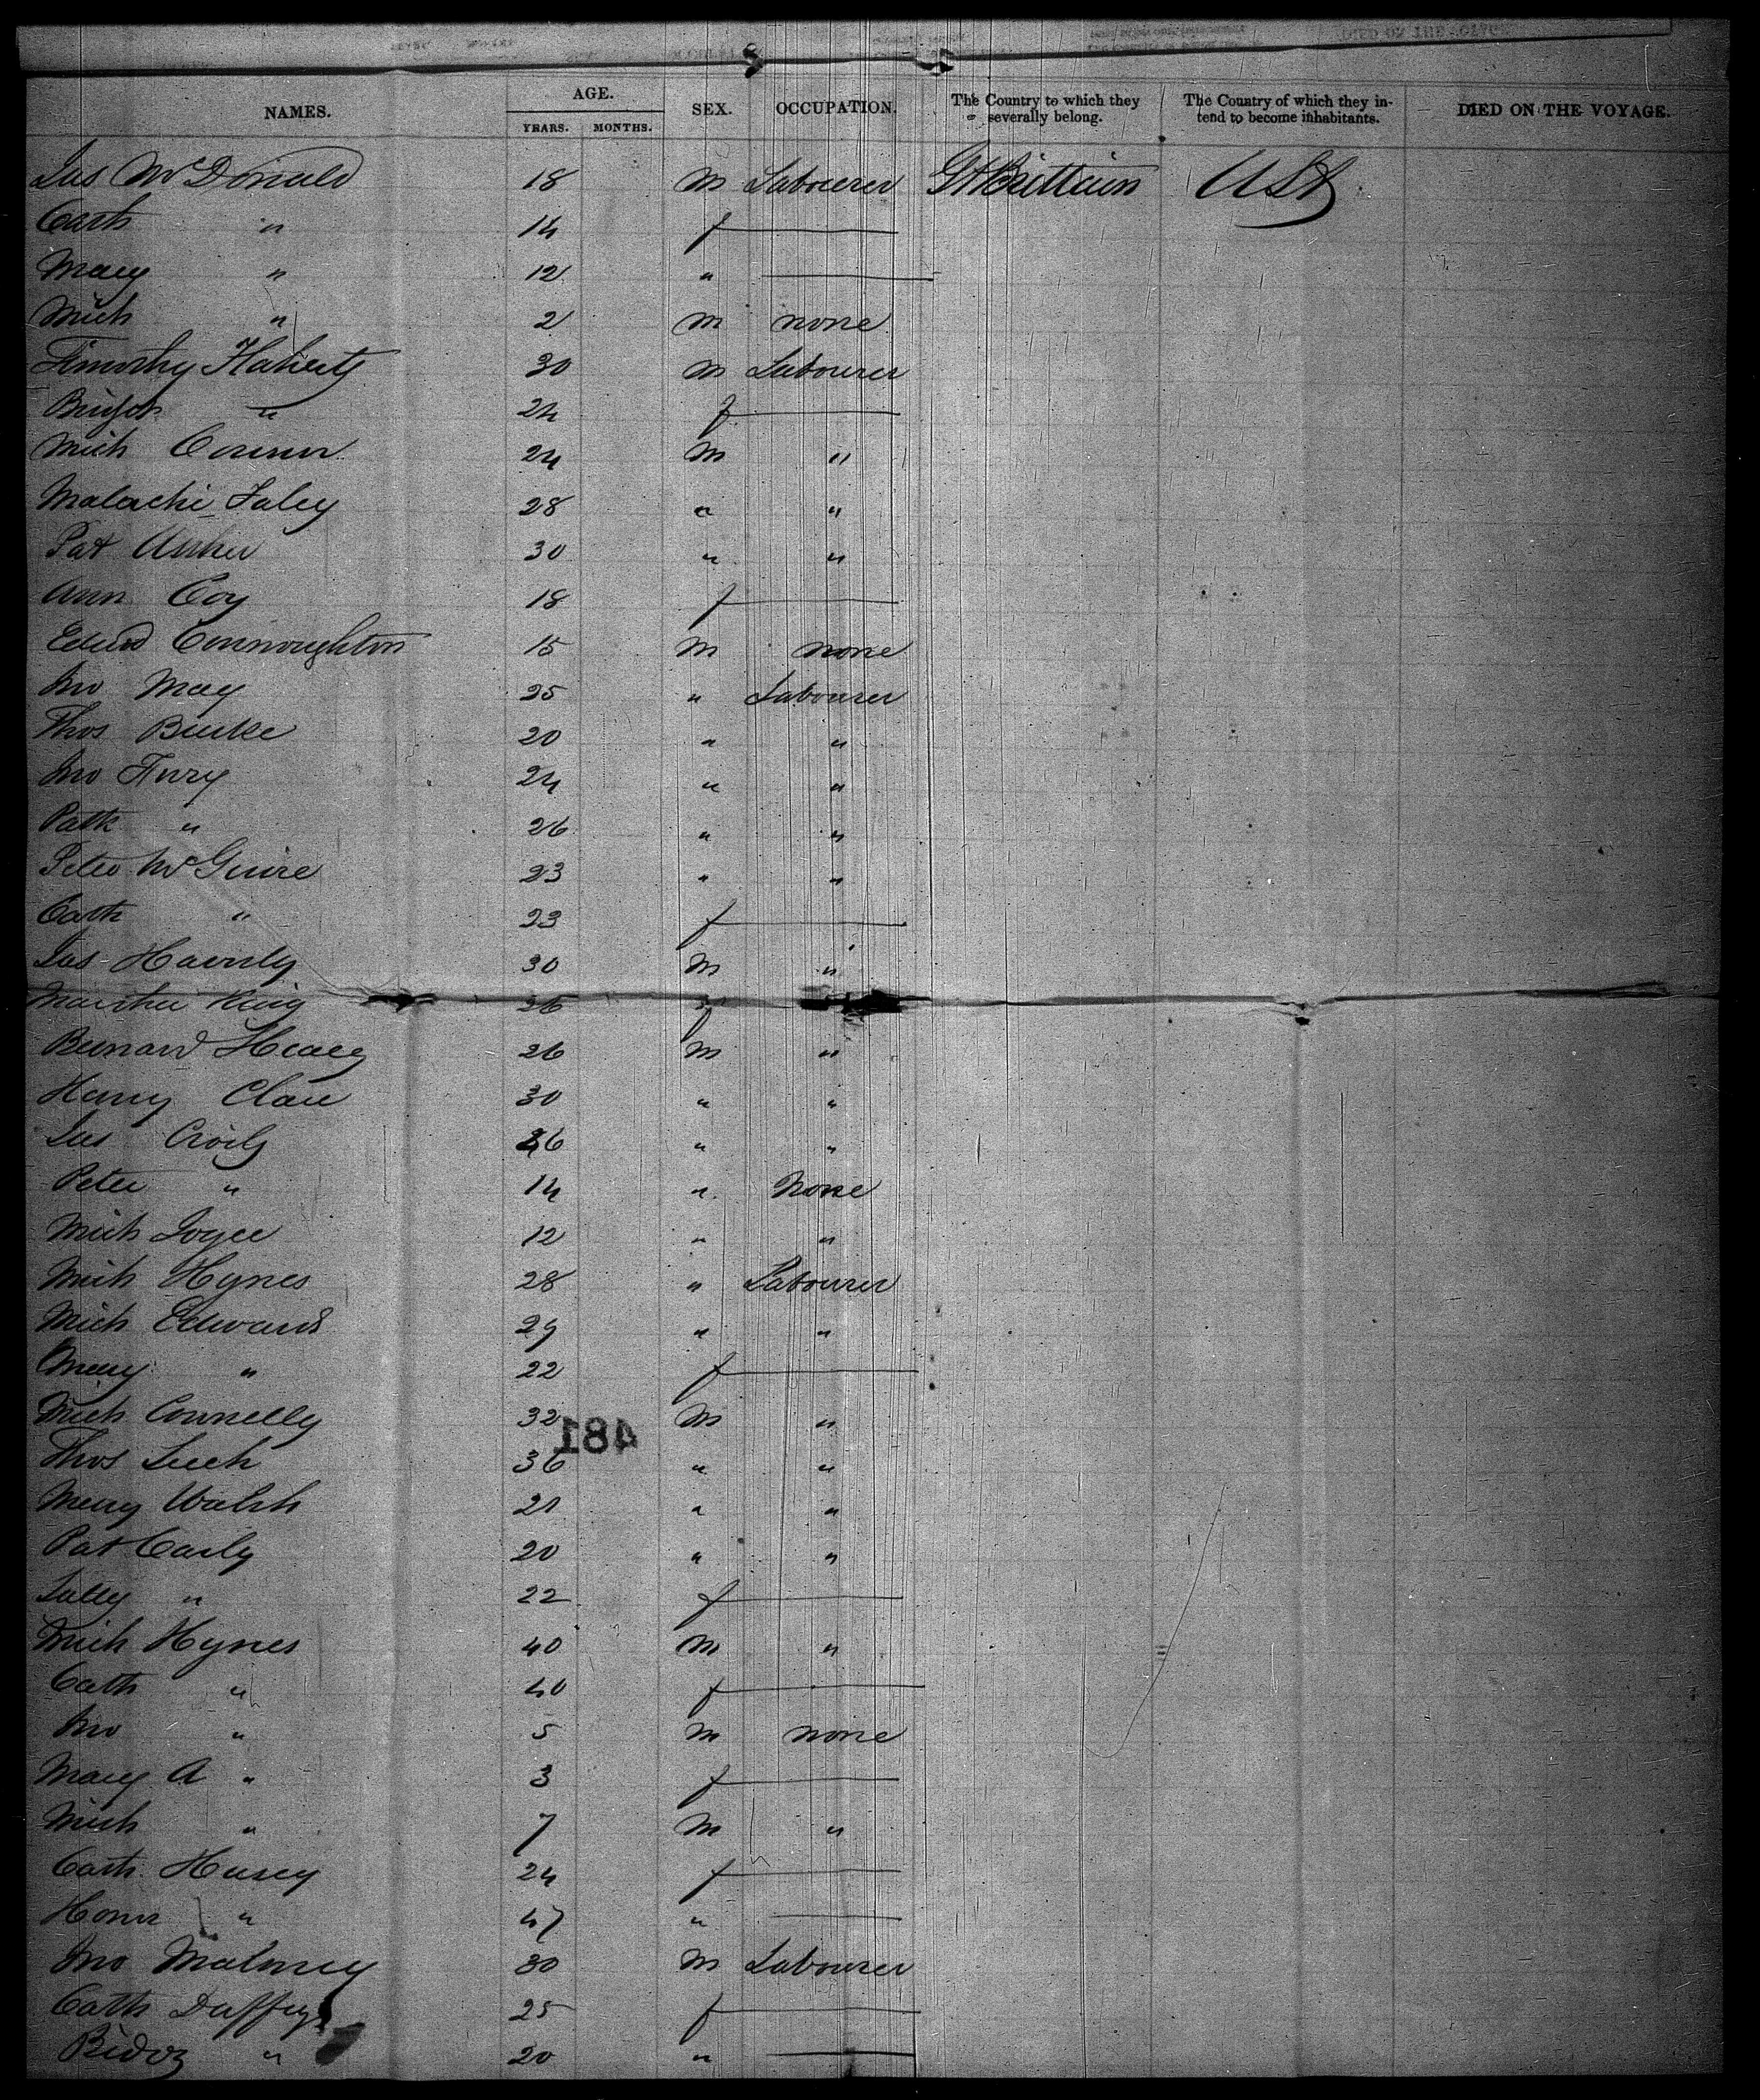 NAMES. AGE. SEX. OCCUPATION. The Country to which they severally belong. The Country of which they intend to become inhabitants. DIED ON THE VOYAGE.
YEARS. MONTHS.
Jas McDonald 18 m Labourer Gt Brittain USA
Cath " 14 f
Mary " 12 "
Mich " 2 m none
Timothy Flaherty 30 m Labourer
" 24 f
Mich Connor 24 m "
Malachi Faley 28 " "
Pat 30 " "
Ann Coy 18 f
Edwd Connoughton 15 m none
Jno May 25 " Labourer
Thos Burke 20 " "
Jno Fury 24 " "
Patk " 26 " "
Peter McGuire 23 " "
Cath " 23 f
Jas Haverly 30 m "
Martha King 26 f
Bernard Healy 26 m "
Harry Clare 30 " "
Jas 26 " "
Peter " 14 " None
Mich Joyce 12 " "
Mich Hynes 28 " Labourer
Mich Edwards 29 " "
Mary " 22 f
Mich Connelly 32 m "
481
Thos Leech 36 " "
Walsh 21 " "
Pat Carly 20 " "
Sally " 22 f
Mich Hynes 40 m "
Cath " 40 f
Jno " 5 m none
Mary A " 3 f
Mich " 7 m "
Cath Husey 24 f
Honor " 47 "
Jno Maloney 30 m Labourer
Cath Duffey 25 f
Biddy " 20 "